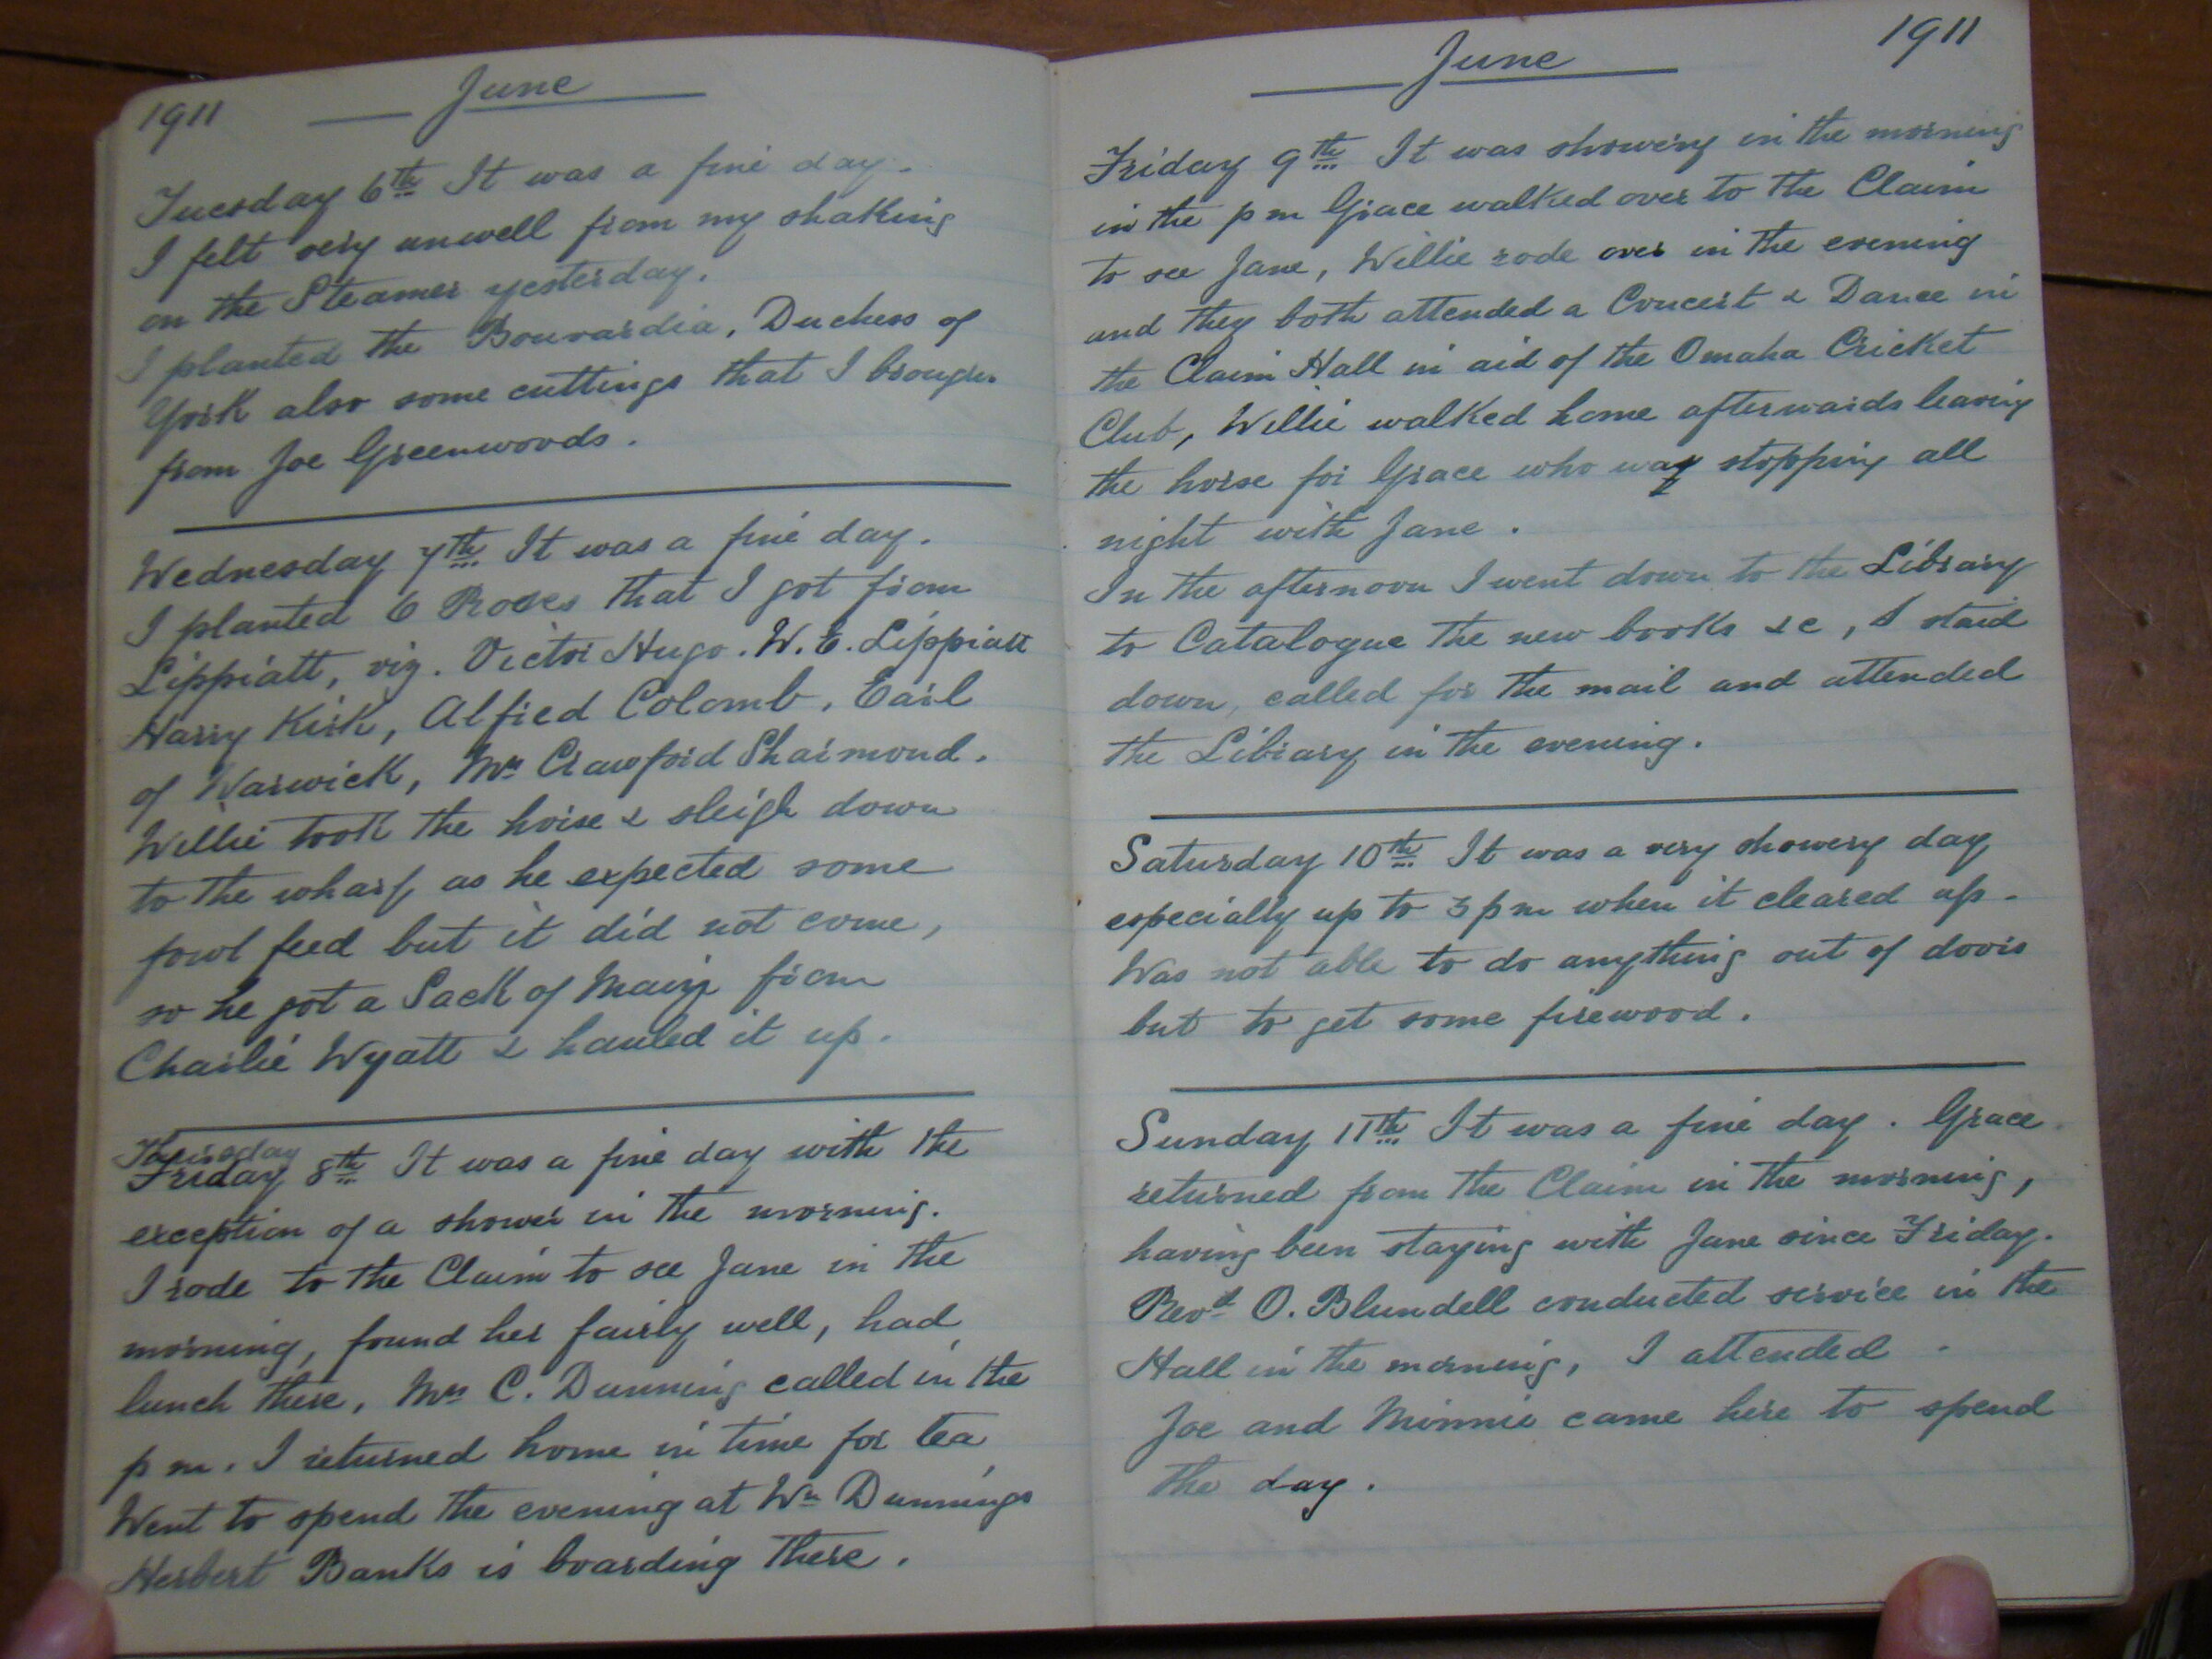 1911 June
Tuesday 6th It was a fine day.
I felt very unwell from my shaking
on the Steamer yesterday.
I planted the Bouvardia, Duchess of
York also some cuttings that I brought
from Joe Greenwoods.
Wednesday 7th It was a fine day.
I planted 6 Roses that I got from
Lippiatt, viz. Victor Hugo. W. E. Lippiatt
Harry Kirk, Alfred Colomb, Earl
of Warwick, Mrs Crawford Sharmond.
Willie took the horse & sleigh down
to the wharf as he expected some
fowl feed but it did not come,
so he got a Sack of Maize from
Charlie Wyatt & hauled it up.
Thursday
Friday 8th It was a fine day with the
exception of a shower in the morning.
I rode to the Claim to see Jane in the
morning, found her fairly well, had
lunch there, Mrs C. Dunning called in the
p m. I returned home in time for tea
Went to spend the evening at Wm Dunnings
Herbert Banks is boarding there.
June 1911
Friday 9th It was showery in the morning
in the p m Grace walked over to the Claim
to see Jane, Willie rode over in the evening
and they both attended a Concert & Dance in
the Claim Hall in aid of the Omaha Cricket
Club, Willie walked home afterwards leaving
the horse for Grace who was stopping all
night with Jane.
In the afternoon I went down to the Library
to Catalogue the new books &c, I staid
down, called for the mail and attended
the Library in the evening.
Saturday 10th It was a very showery day
especially up to 3 p m when it cleared up.
Was not able to do anything out of doors
but to get some firewood.
Sunday 11th It was a fine day. Grace
returned from the Claim in the morning,
having been staying with Jane since Friday.
Revd O. Blundell conducted service in the
Hall in the morning, I attended.
Joe and Minnie came here to spend
the day.